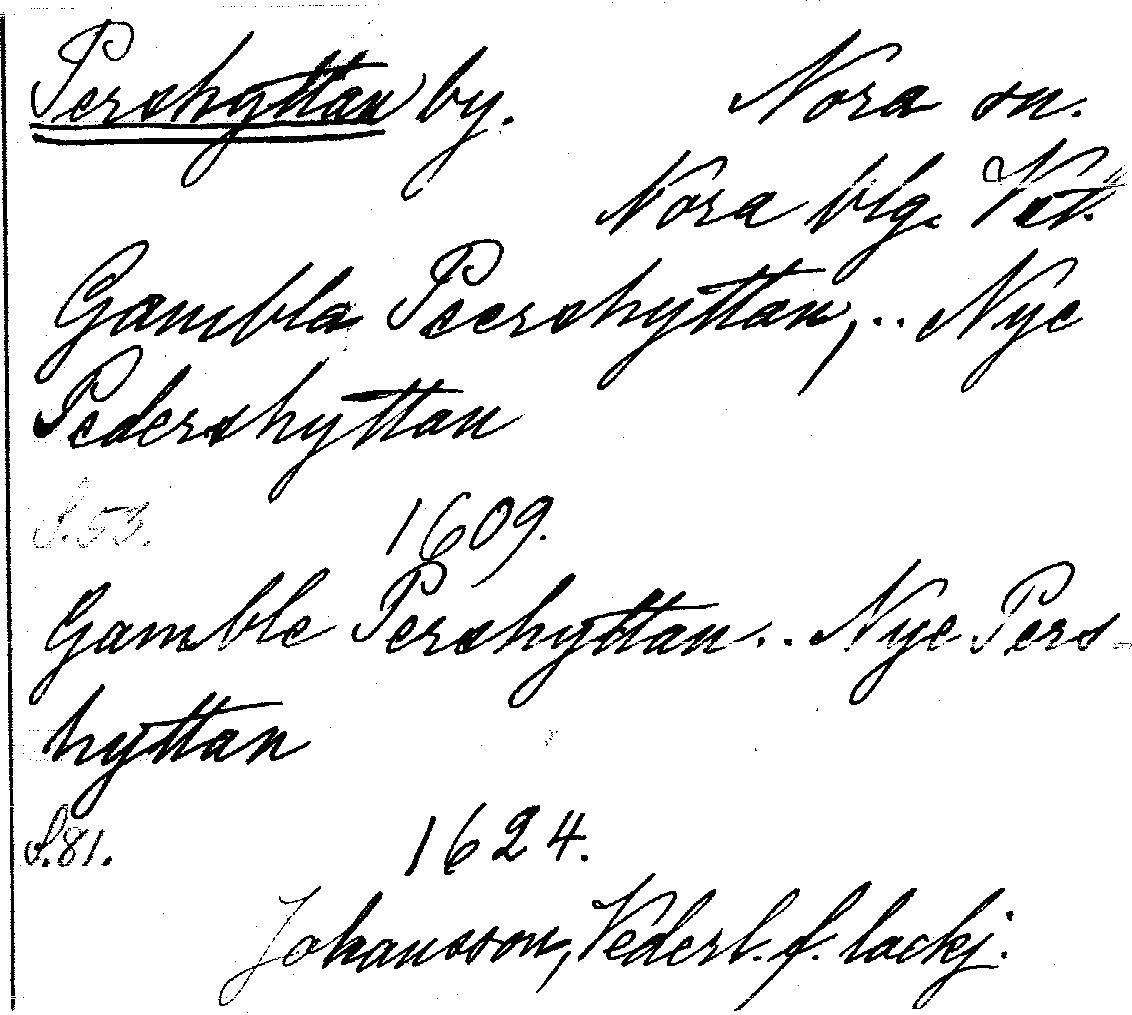 Pershyttan by. Nora sn.
Nora blg. Vstl.
Gambla Peershyttan, .. Nye
Pedershyttan
S. 53. 1609.
Gamble Pershyttan .. Nye Pers-
hyttan
S. 81. 1624.
Johansson, Vederl. f. lackj.